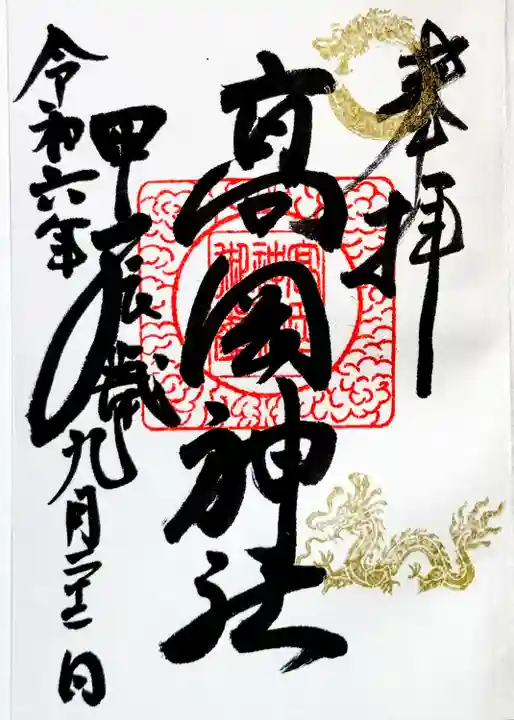 奉拝
高岡神社
甲辰歳九月二十二日
令和六年